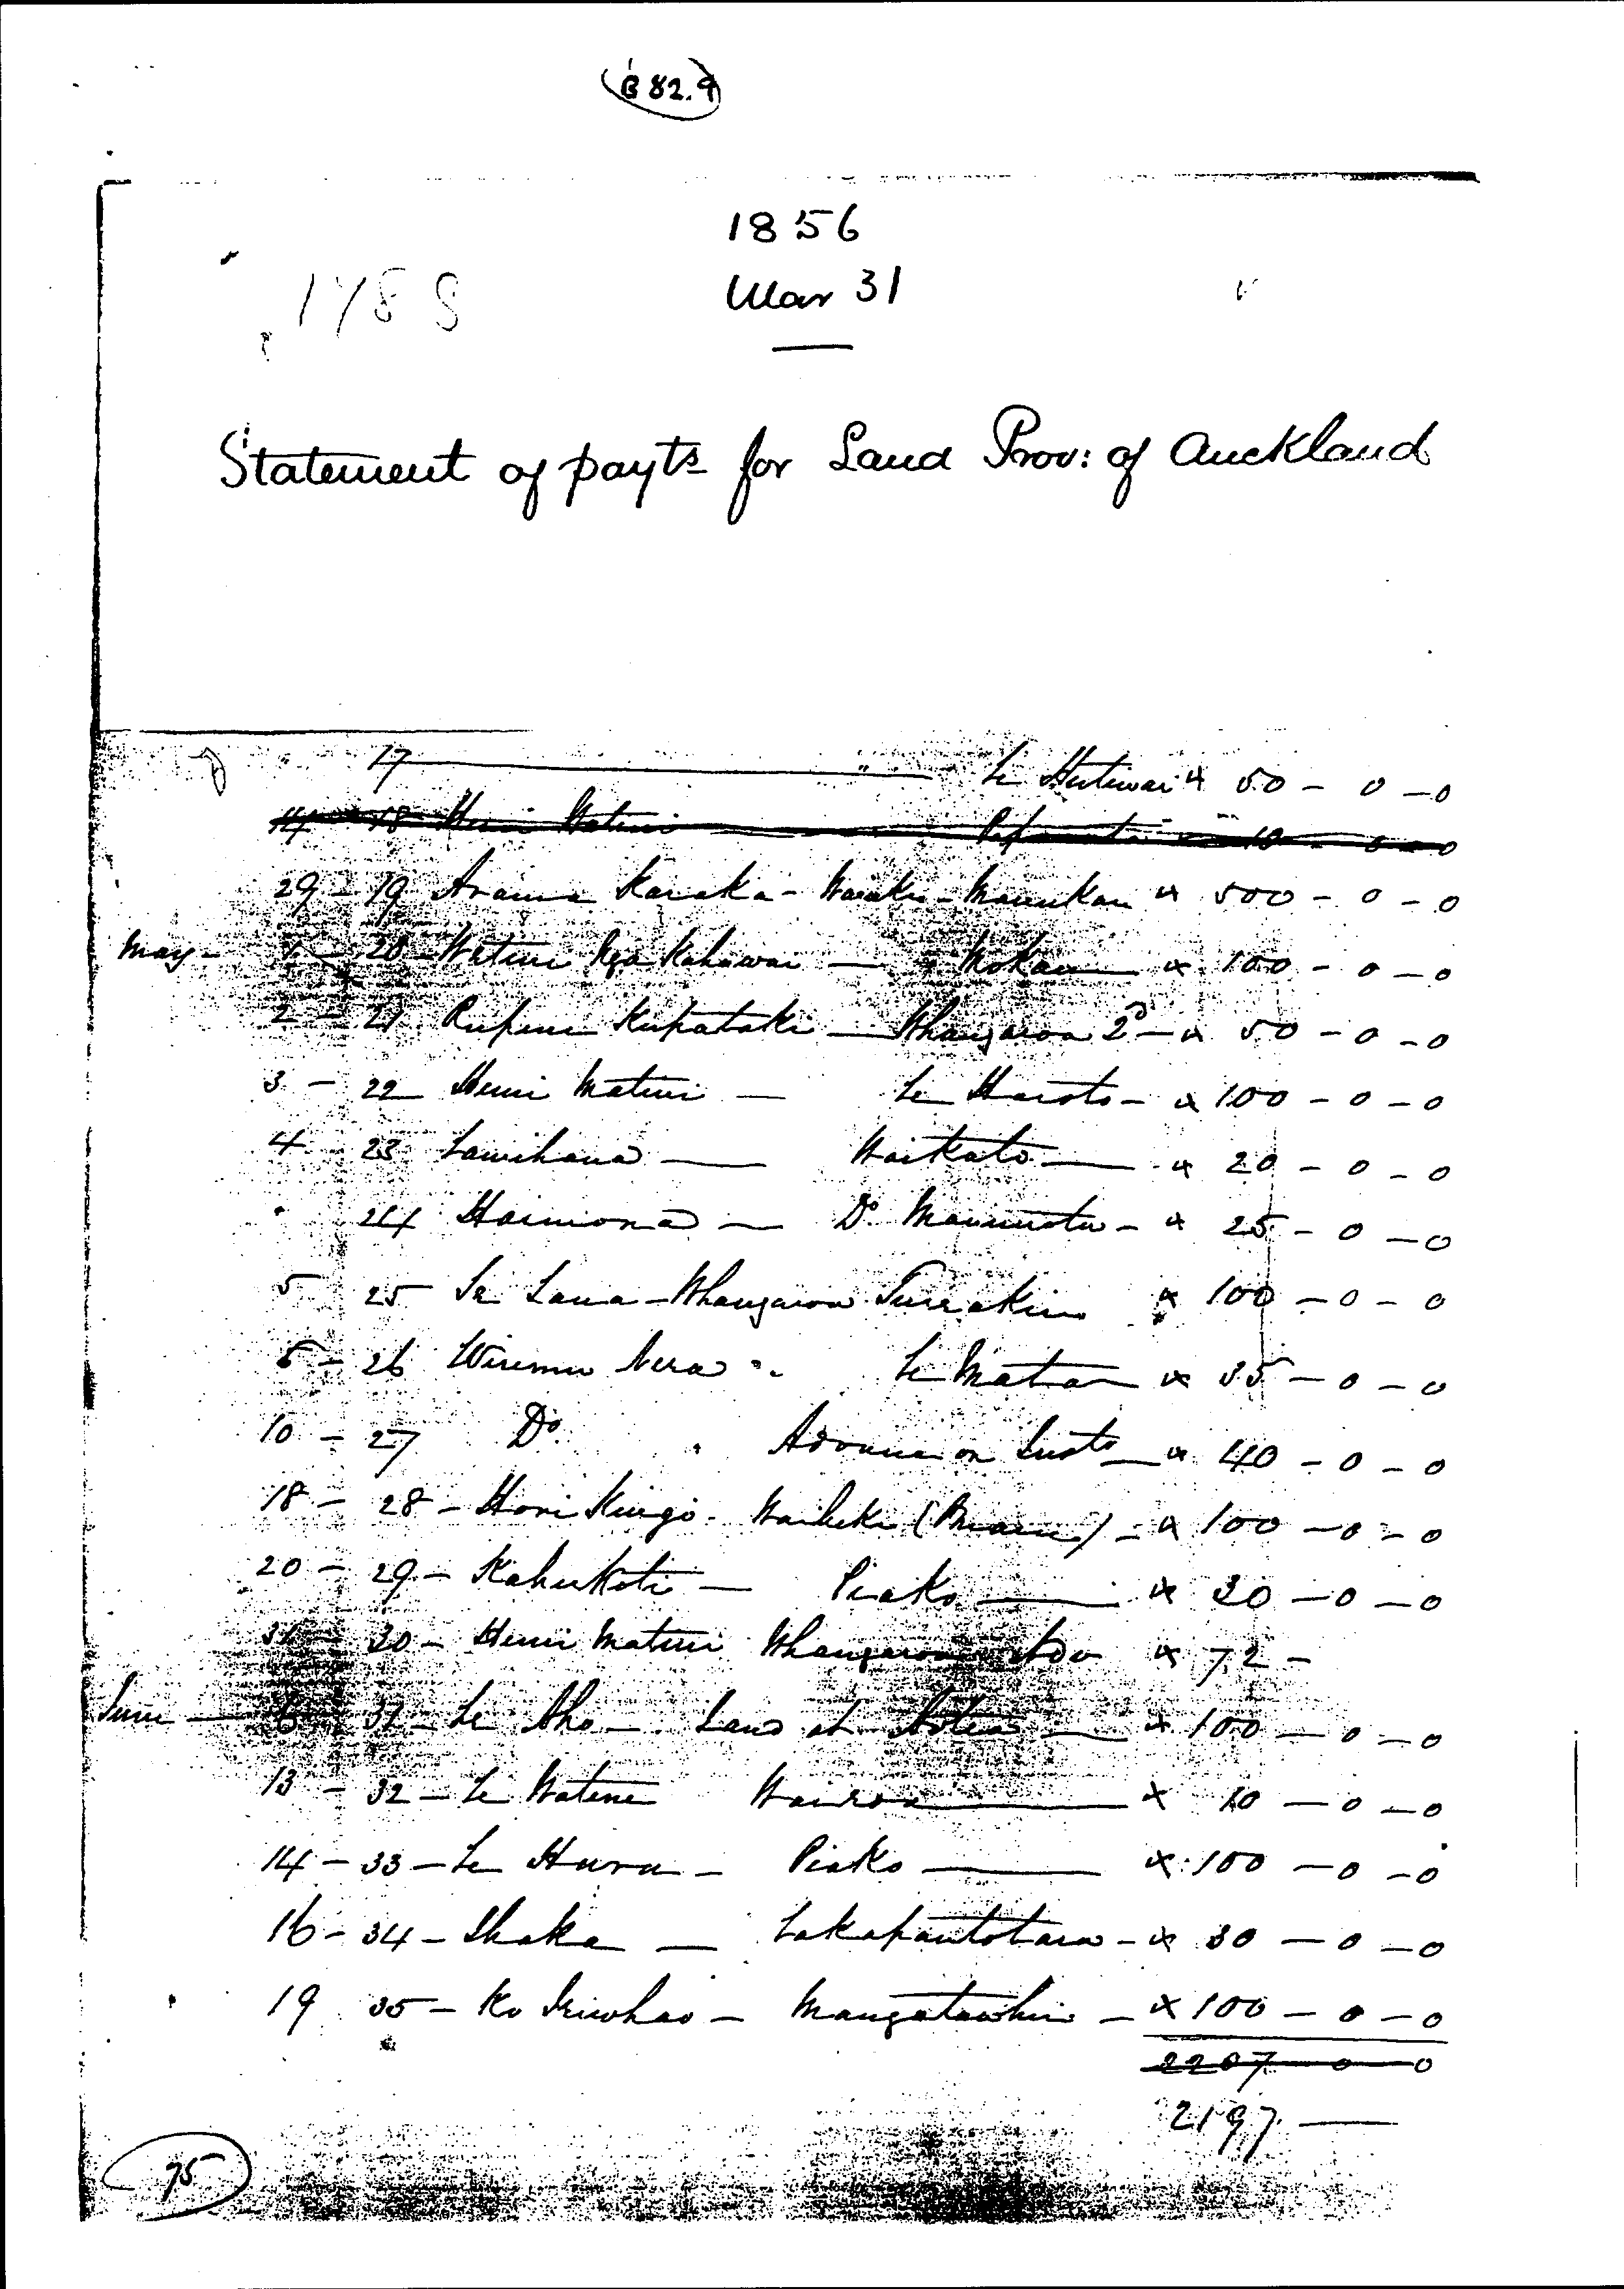 B 82.9
1856
Mar 31
Statement of payts for Land Prov: of Auckland
17 " Te Hutewai × 50 - 0 - 0
14 18 Hemi Matini 10 - 0 - 0
29 - 19 Arama Karaka - Waiuku - Manukau × 500 - 0 - 0
May - 1 - 20 Wetini Nga Kahawai - Mokau × 100 - 0 - 0
2 - 21 Kupatake - Whangaroa 2d - × 50 - 0 - 0
3 - 22 Hemi Matini - Te Haroto - × 100 - 0 - 0
4 - 23 Tamihana - Waikato - × 20 - 0 - 0
" 24 Haimona - Do × 25 - 0 - 0
5 25 Te Tawa - Whangaroa × 100 - 0 - 0
26 Wiremu Nera Te Mata × 35 - 0 - 0
10 - 27 Do Advance on × 40 - 0 - 0
18 - 28 - Hori Kingi - Waiheke ( ) - × 100 - 0 - 0
20 - 29 - Kahukoti - Piako - × 30 - 0 - 0
31 - 30 - Hemi Matini Whangaroa × 72 -
June - 31 - Te Aho - Land at Aotea - × 100 - 0 - 0
13 - 32 - Te Watene Wairoa - × 10 - 0 - 0
14 - 33 - Te Hura - Piako - × 100 - 0 - 0
16 - 34 - Ihaka - Takapautotara - × 30 - 0 - 0
19 35 - Ko - Mangatawhiri - × 100 - 0 - 0
2207 - 0 - 0
2197 -
75